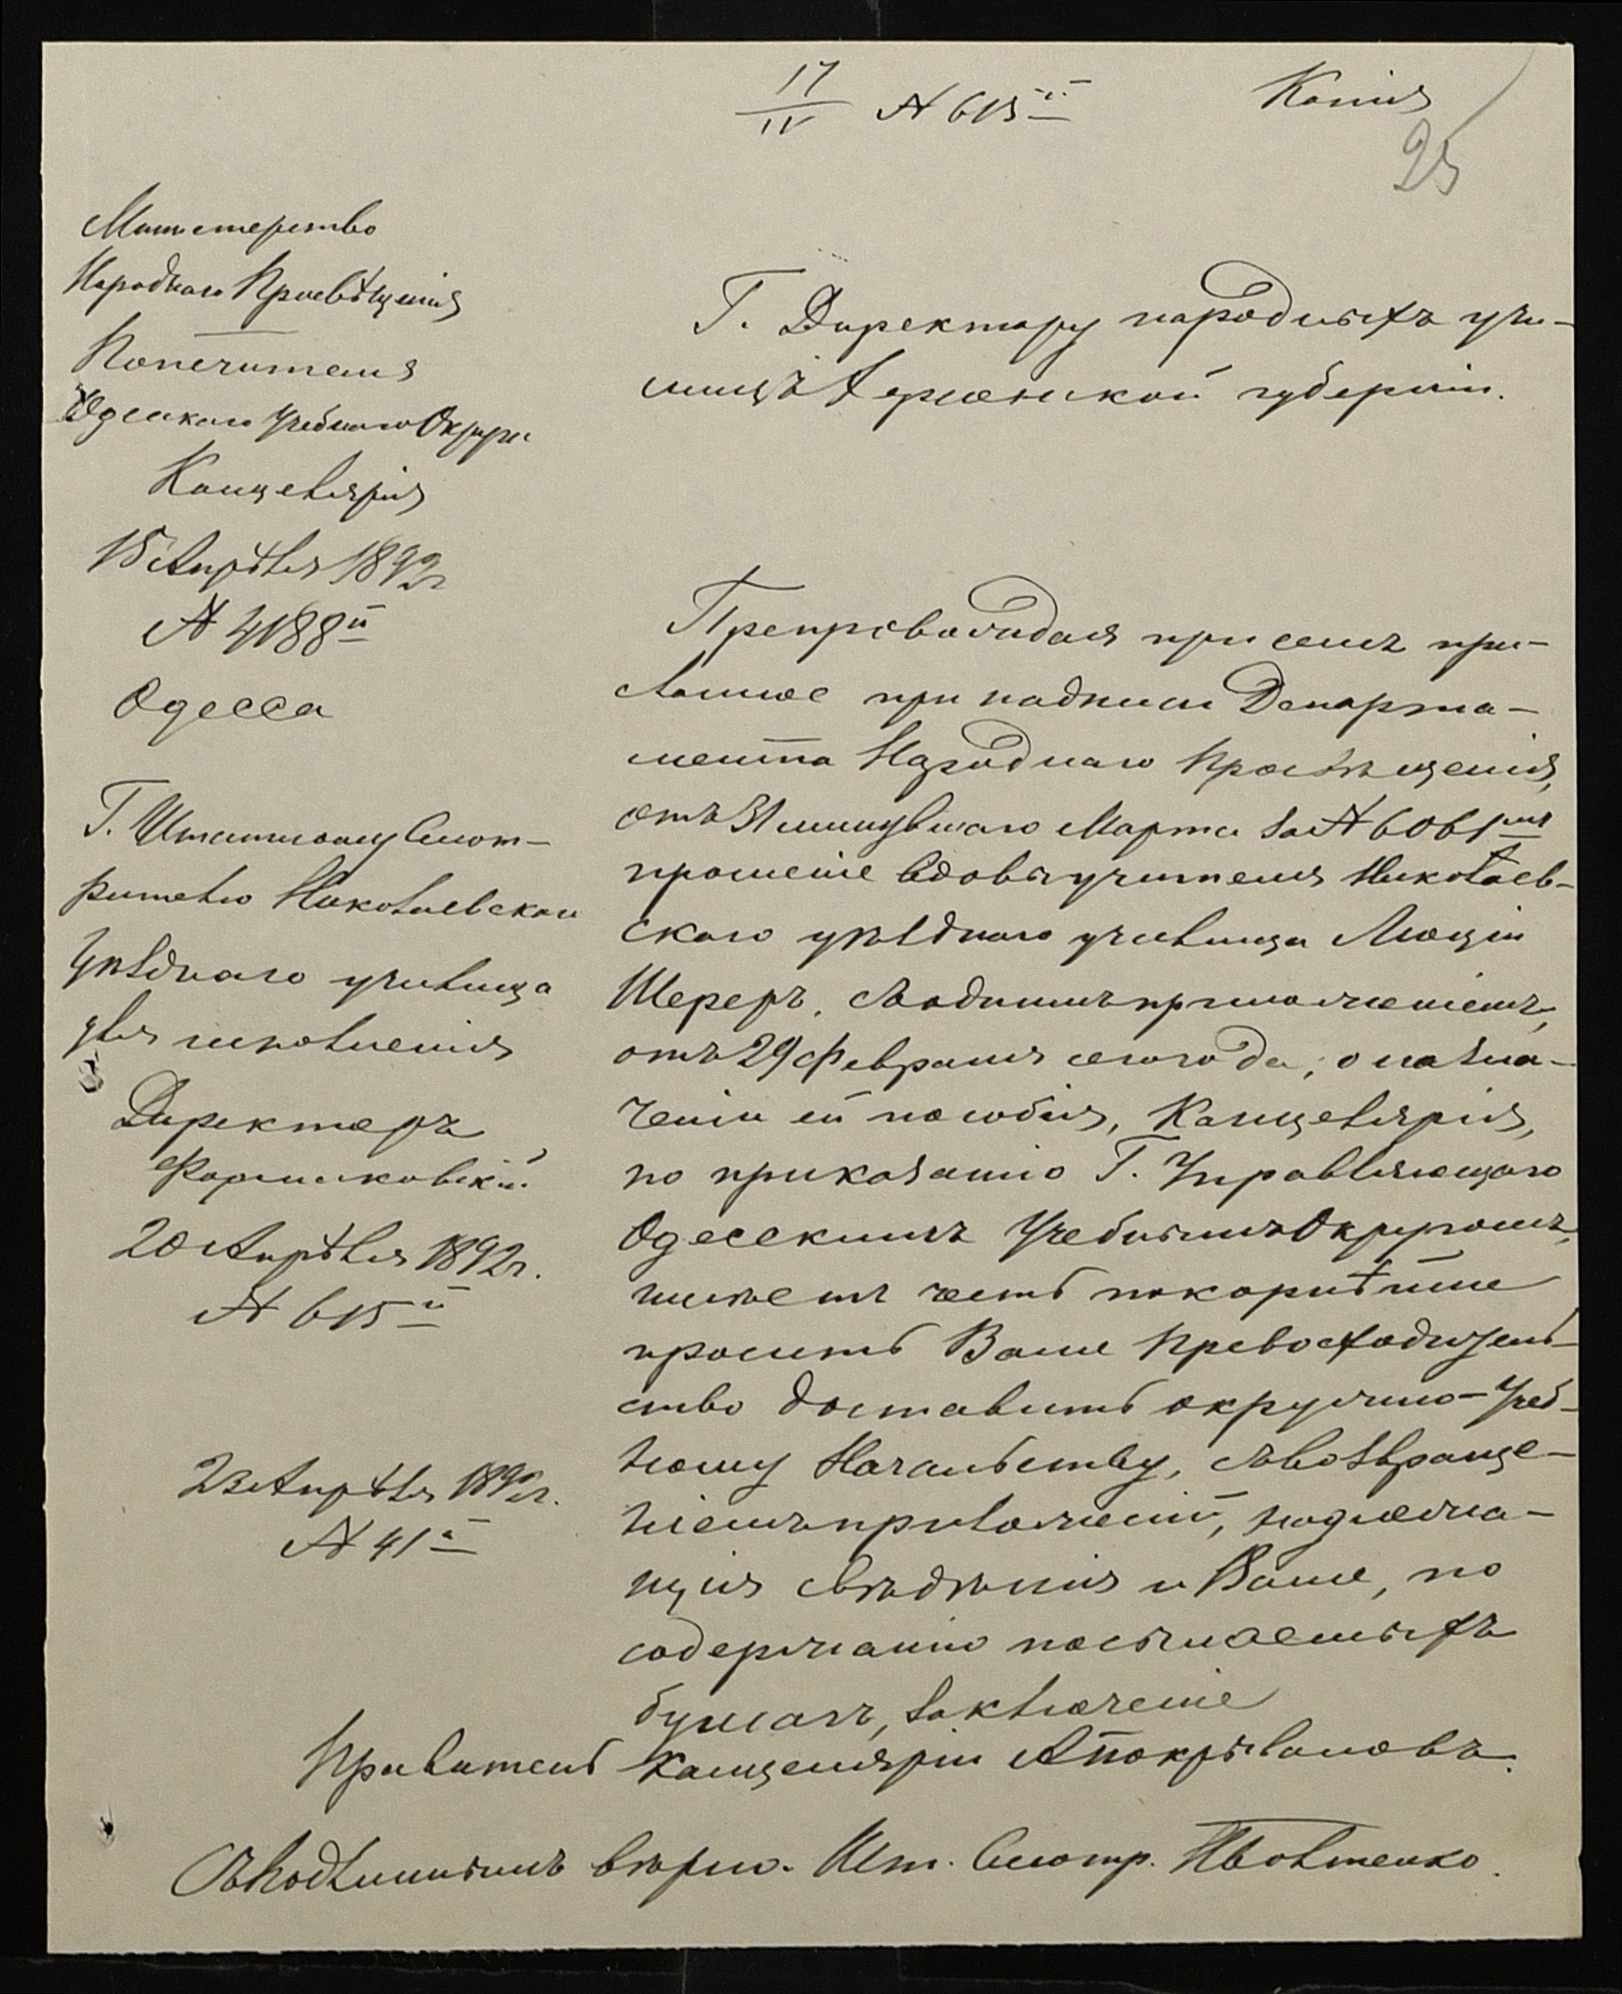 17/IV № 615й
Копія
25
Министерство
Народнаго Просвѣщенія
Попечителя
Одесскаго Учебнаго Округа
Канцелярія
15 Апрѣля 1892г
№ 4188й
Одесса
Г. Штатному Смот-
рителю Николаевскаго
Уѣзднаго училища
для исполненія
Директоръ
20 Апрѣля 1892г.
№ 615й
23 Апрѣля 1892г.
№ 41й
Г. Директору народныхъ учи-
лищъ Херсонской губерніи.
Препровождая при семъ при-
сланное при надписи Департа-
мента Народнаго Просвѣщенія,
отъ 31 минувшаго Марта за № 6061мъ
прошеніе вдовы учителя Николаев-
скаго уѣзднаго училища Люціи
Шереръ, съ однимъ приложеніемъ,
отъ 29 Февраля сего года, о назна-
ченіи ей пособія, Канцелярія,
по приказанію Г. Управляющаго
Одесскимъ Учебнымъ Округомъ,
имѣетъ честь покорнѣйше
просить Ваше Превосходитель-
ство доставить окружно-Учеб-
ному Начальству, съ возвраще-
ніемъ приложеній, надлежа-
щія свѣдѣнія и Ваше, по
содержанію посылаемыхъ
бумагъ, заключеніе
Правитель Канцеляріи А Покрывановъ.
Съ подлиннымъ вѣрно. Шт. Смотр.